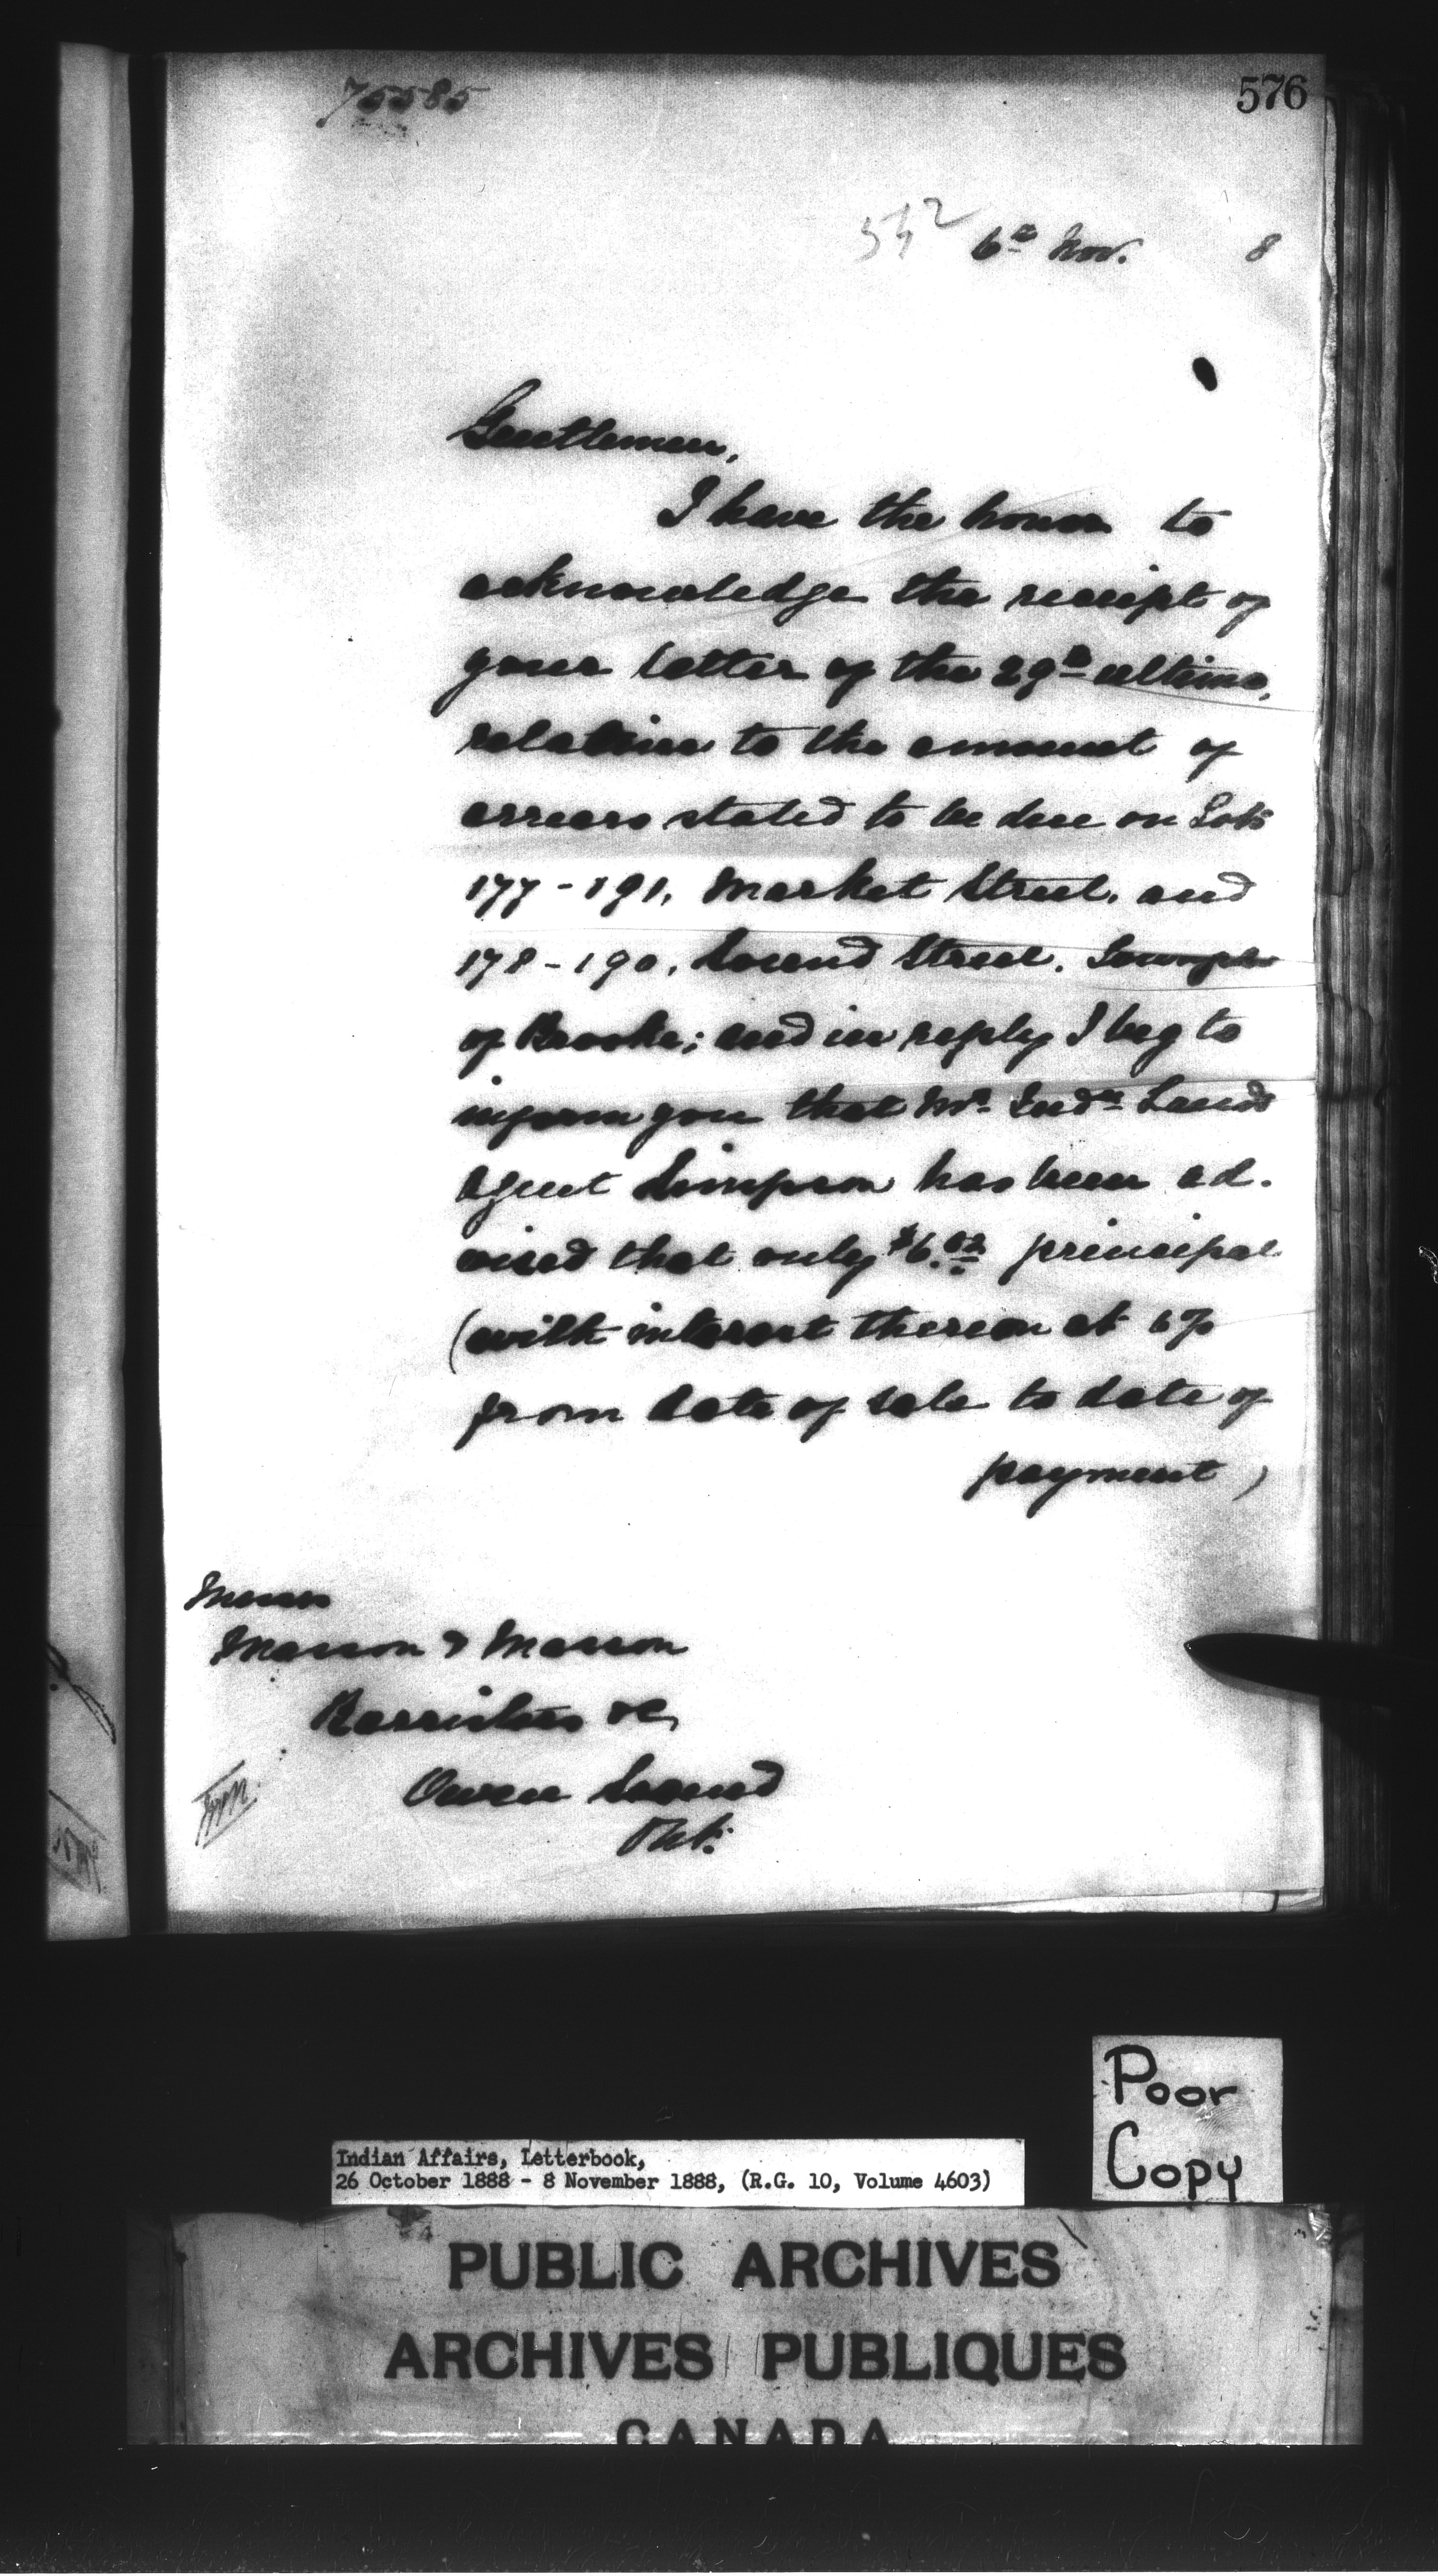 75585
576
6th Nov. 8
Gentlemen,
I have the honor to
acknowledge the receipt of
your letter of the 29th ultimo,
relative to the amount of
arrears stated to be due on Lots
177-191, Market Street, and
178-190, Sound Street,
of Brooke; and in reply I beg to
inform you that Mr. Indn Lands
Agent Simpson has been ad-
vised that only principal
(with interest thereon at 6%
from date of sale to date of
payment)
Messrs
Masson & Masson
Barristers &c
Owen Sound
Ont.
Poor
Copy
Indian Affairs, Letterbook,
26 October 1888 - 8 November 1888, (R.G. 10, Volume 4603)
PUBLIC ARCHIVES
ARCHIVES PUBLIQUES
CANADA